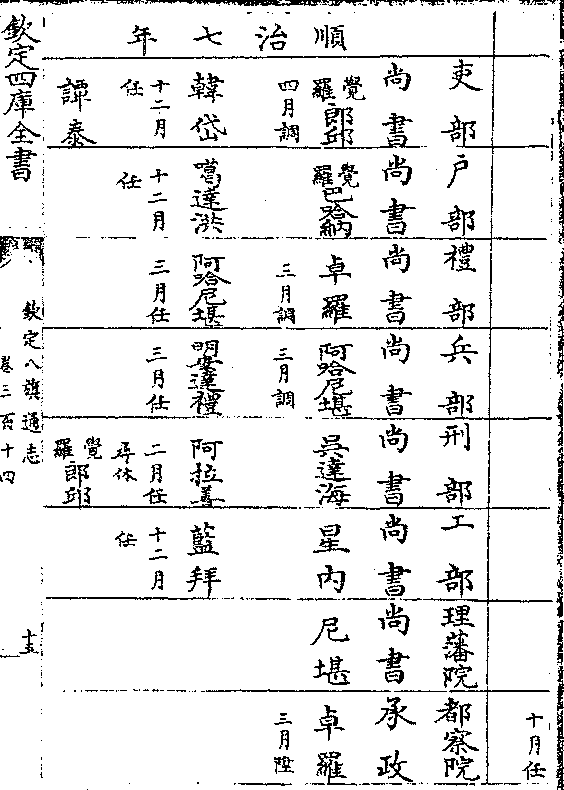 十月任
吏部尚書
戶部尚書
禮部尚書
兵部尚書
刑部尚書
工部尚書
理藩院尚書
都察院承政
順治七年
覺羅郎邱
四月調
韓岱
十二月任
譚泰
覺羅巴哈納
噶達洪
十二月任
卓羅
三月調
阿哈尼堪
三月任
阿哈尼堪
三月調
明安達禮
三月任
吳達海
阿拉善
二月任
尋休
覺羅郎邱
星內
藍拜
十二月任
尼堪
卓羅
三月陞
欽定四庫全書
欽定八旗通志
卷三百十四
十五